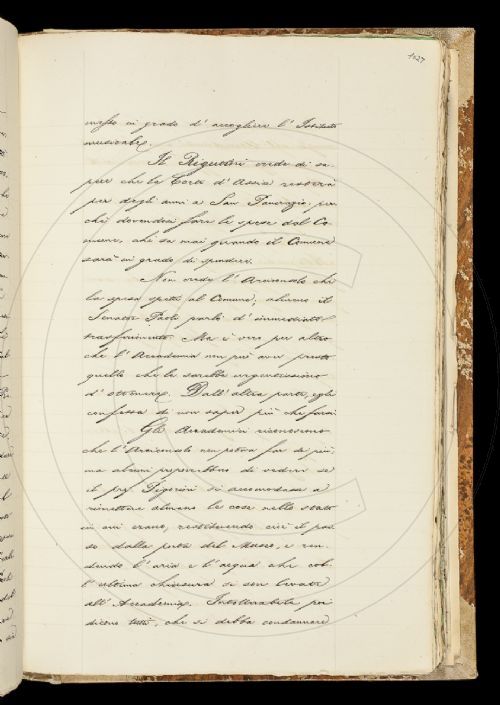 1027
messo in grado d'accogliere l'Istituto
musicale.
Il Righetti crede di sa-
per che la Corte d'Assise resterà
per degli anni a San Pancrazio, per
chè dovendosi fare le spese dal Co-
mune, chi sa mai quando il Comune
sarà in grado di spendere.
Non crede l'Arciconsolo che
la spesa spetti al Comune; almeno il
Senator Paoli parlò d'immediato
trasferimento. Ma è vero per altro
che l'Accademia non può aver presto
quello che le sarebbe urgentissimo
d'ottenere. Dall'altra parte, egli
confessa di non saper più che farsi
Gli Accademici riconoscono
che l'Arciconsolo non poteva far di più;
ma alcuni proporrebbero di vedere se
il prof. Pigorini si accomodasse a
rimettere almeno le cose nello stato
in cui erano, restituendo cioè il pas-
so dalla porta del Museo, e ren-
dendo l'aria e l'acqua che col-
l'ultima chiusura si son levate
all'Accademia. Intollerabile poi
dicono tutti, che si debba condannare